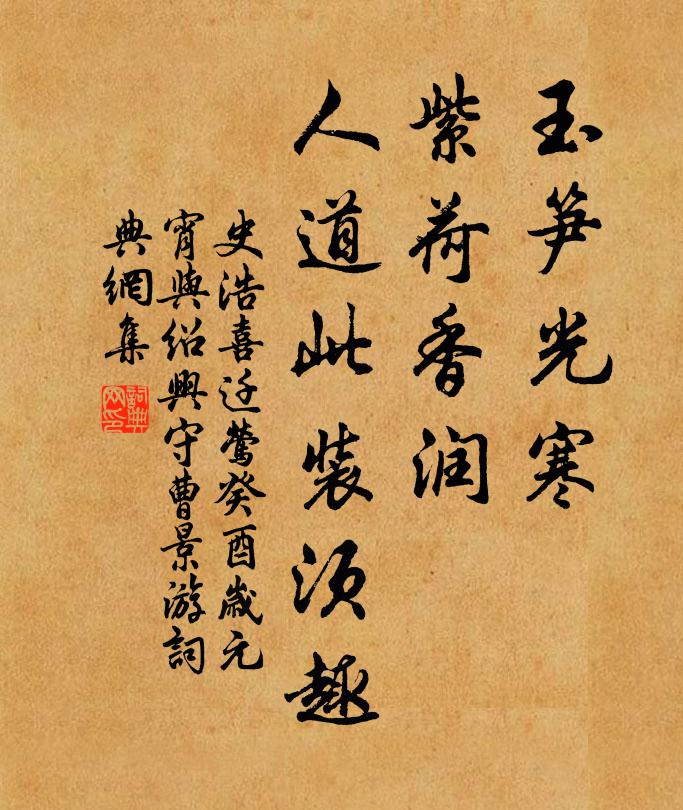 玉笋光寒
紫荷香润
人道此装须趣
史浩喜迁莺癸酉歲元
宵與绍興守曹景游詞
典網集
詞典
网印